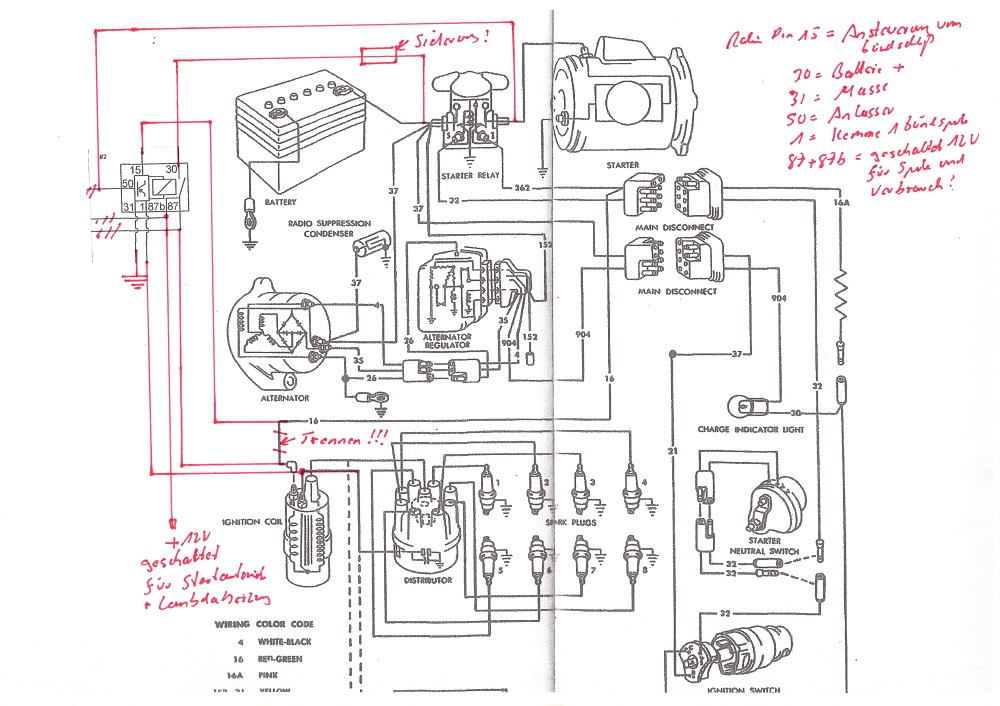 Sicherung!
Relais Pin 15 = Ansteuerung vom
Zündschloß
30 = Batterie +
31 = Masse
50 = Anlasser
1 = Klemme 1 Zündspule
87+87b = geschaltet 12V
für Spule und
Verbrauch!
#2
15 30
50
31 1 87b 87
BATTERY
STARTER RELAY
S I
STARTER
262
32
37
37
152
MAIN DISCONNECT
16A
RADIO SUPPRESSION
CONDENSER
37
MAIN DISCONNECT
904
4
35
152
ALTERNATOR
REGULATOR
26
904
4
904
37
35
26
16
32
ALTERNATOR
30
CHARGE INDICATOR LIGHT
16
Trennen !!!
21
1 2 3 4
IGNITION COIL
SPARK PLUGS
5 6 7 8
STARTER
NEUTRAL SWITCH
DISTRIBUTOR
32
32
+ 12V
geschaltet
für
+ Lambdaheizung
32
WIRING COLOR CODE
4 WHITE-BLACK
16 RED-GREEN
16A PINK
152, 21 YELLOW
IGNITION SWITCH